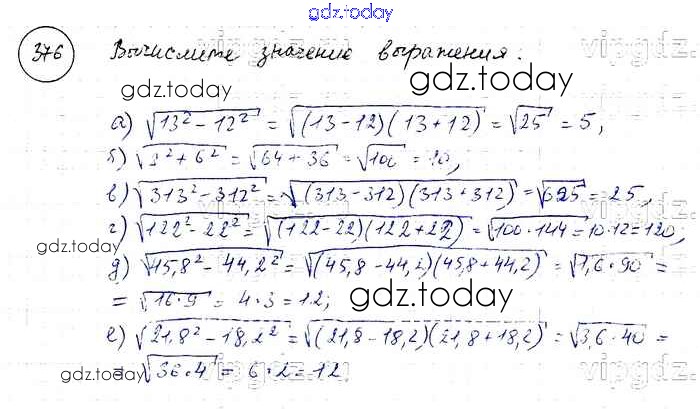 gdz.today
376 Вычислите значение выражения:
gdz.today
а) √(13² − 12²) = √((13−12)(13+12)) = √25 = 5,
б) √(8² + 6²) = √(64 + 36) = √100 = 10,
в) √(313² − 312²) = √((313−312)(313+312)) = √625 = 25,
г) √(122² − 22²) = √((122−22)(122+22)) = √(100·144) = 10·12 = 120,
gdz.today
д) √(45,8² − 44,2²) = √((45,8−44,2)(45,8+44,2)) = √(1,6·90) =
= √(16·9) = 4·3 = 12;
gdz.today
е) √(21,8² − 18,2²) = √((21,8−18,2)(21,8+18,2)) = √(3,6·40) =
= √(36·4) = 6·2 = 12.
gdz.today
vipgdz